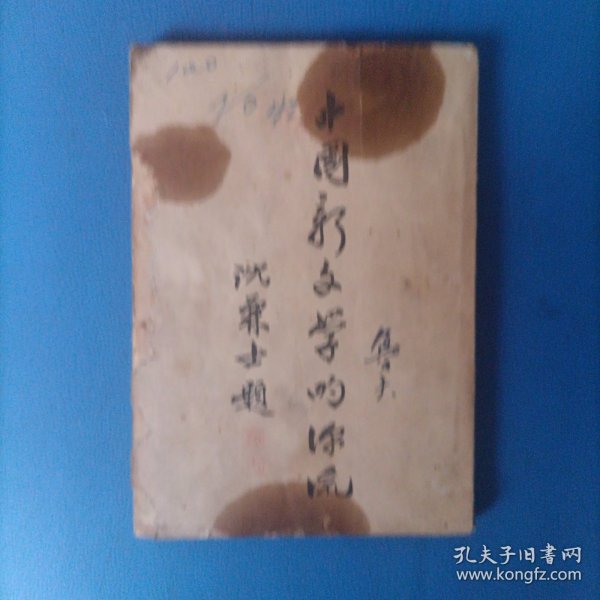 中國新文學的源流
沈兼士題
孔夫子旧書网
www.kongfz.com